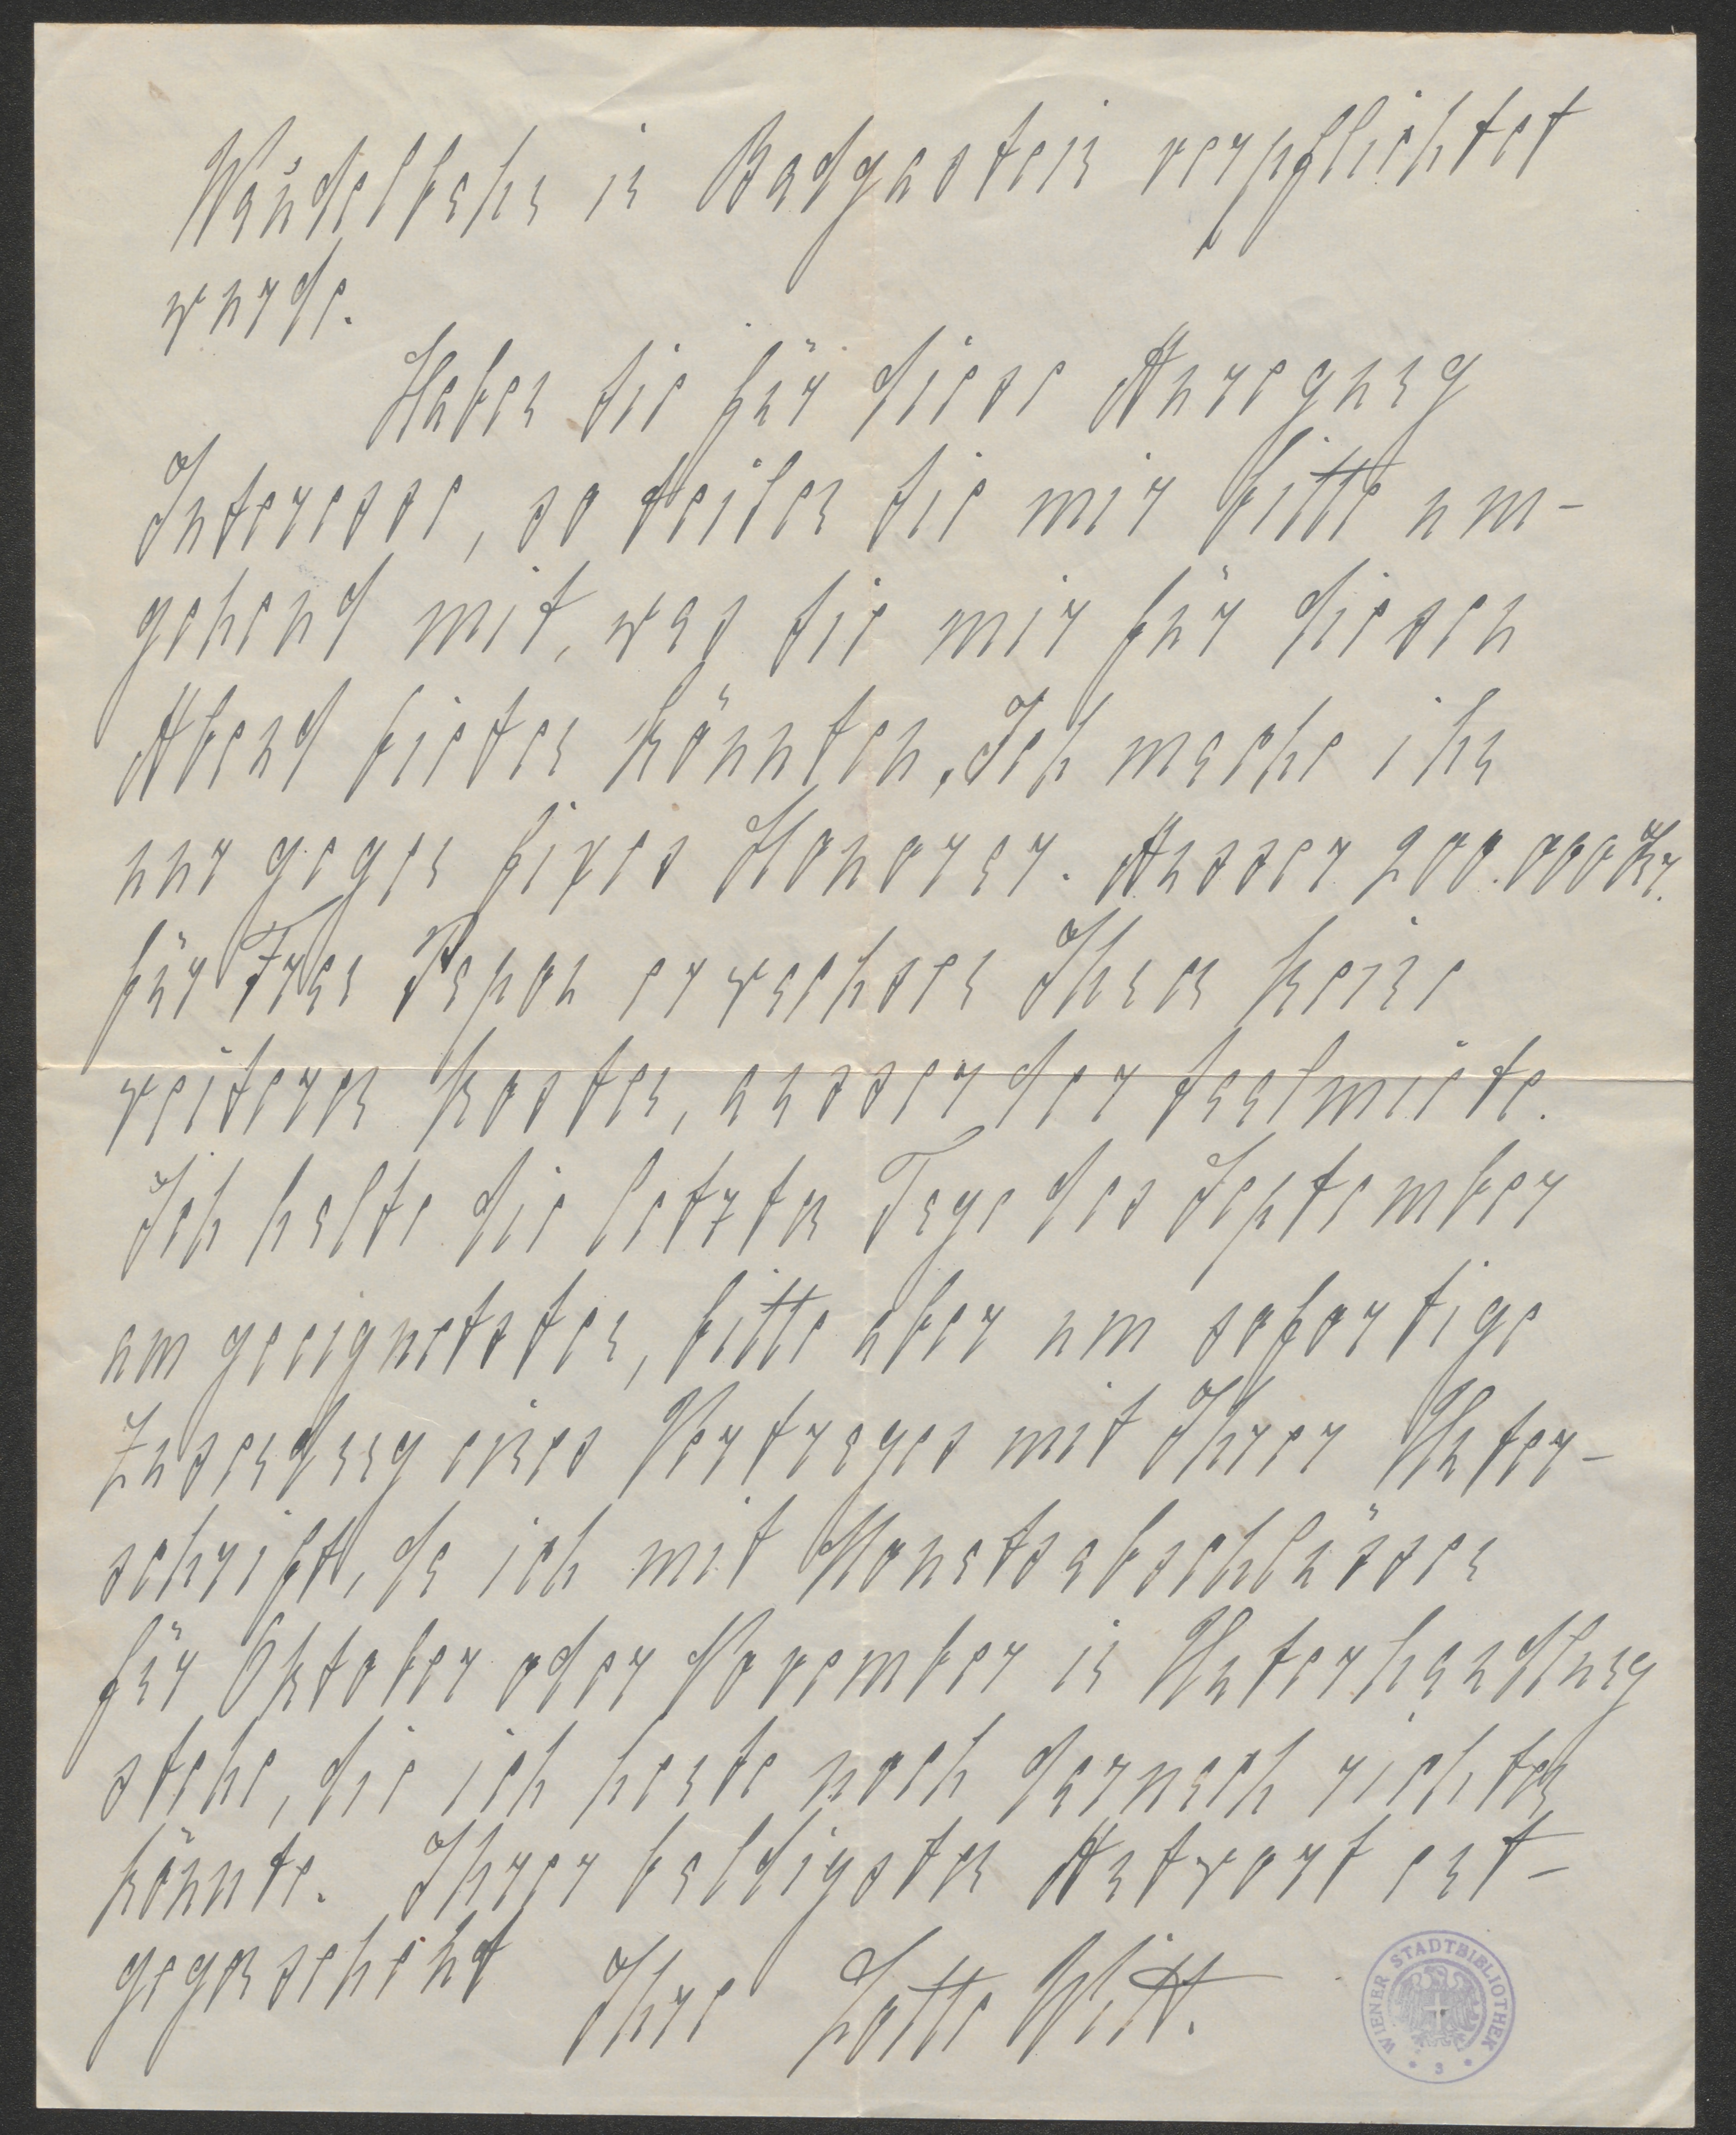 Wandelbahn in Badgastein verpflichtet
wurde.
Haben Sie für diese Anregung
Interesse, so teilen Sie mir bitte um-
gehend mit, was Sie mir für diesen
Abend bieten könnten. Ich mache ihn
nur gegen fixes Honorar. Ausser 200.000 Kr.
für Frau Papon erwachsen Ihnen keine
weiteren Kosten, ausser der Saalmiete.
Ich halte die letzten Tage des September
am geeignetsten, bitte aber um sofortige
Zusendung eines Vertrages mit Ihrer Unter-
schrift, da ich mit Monatsabschlüssen
für Oktober oder November in Unterhandlung
stehe, die ich heute noch darnach richten
könnte. Ihrer baldigsten Antwort ent-
gegensehend Ihre Lotte Witt.
WIENER STADTBIBLIOTHEK
3